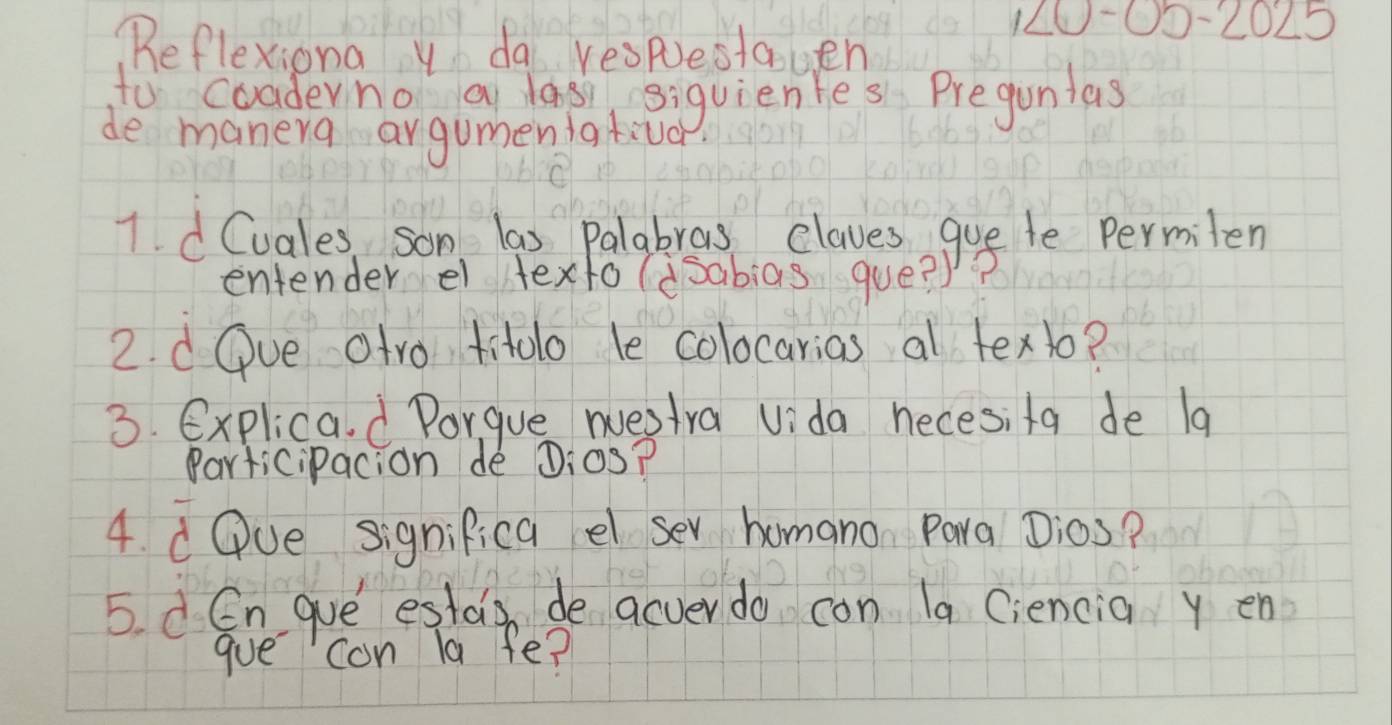 20-05-2025
Reflexiona y da respuesta en
tu cuaderno a las siguientes Preguntas
de manera argumentativa.
1. ¿Cuales son las palabras claves que te permiten
entender el texto (¿Sabias que?)?
2. ¿Que otro titulo le colocarias al texto?
3. Explica. ¿Porque nuestra vida necesita de la
participacion de Dios?
4. ¿Que significa el ser humano para Dios?
5. ¿En qué estás de acuerdo con la Ciencia y en
que con la fe?